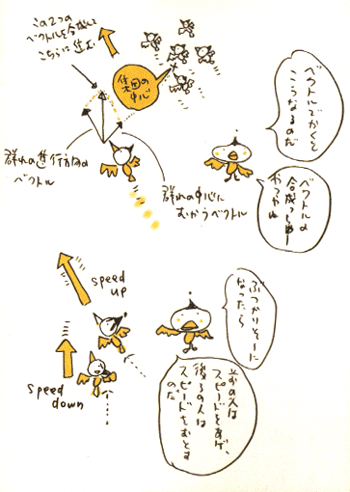 この2つの
ベクトルを合成して
こちらに進む
集団の
中心
群れの進行方向の
ベクトル
群れの中心に
むかうベクトル
ベクトルでかくと
こうなるのだ
ベクトルの
合成っちゅー
やつやね
speed
up
speed
down
ぶつかりそーに
なったら
前の人は
スピードをあげ、
後ろの人は
スピードをおとす
のだ